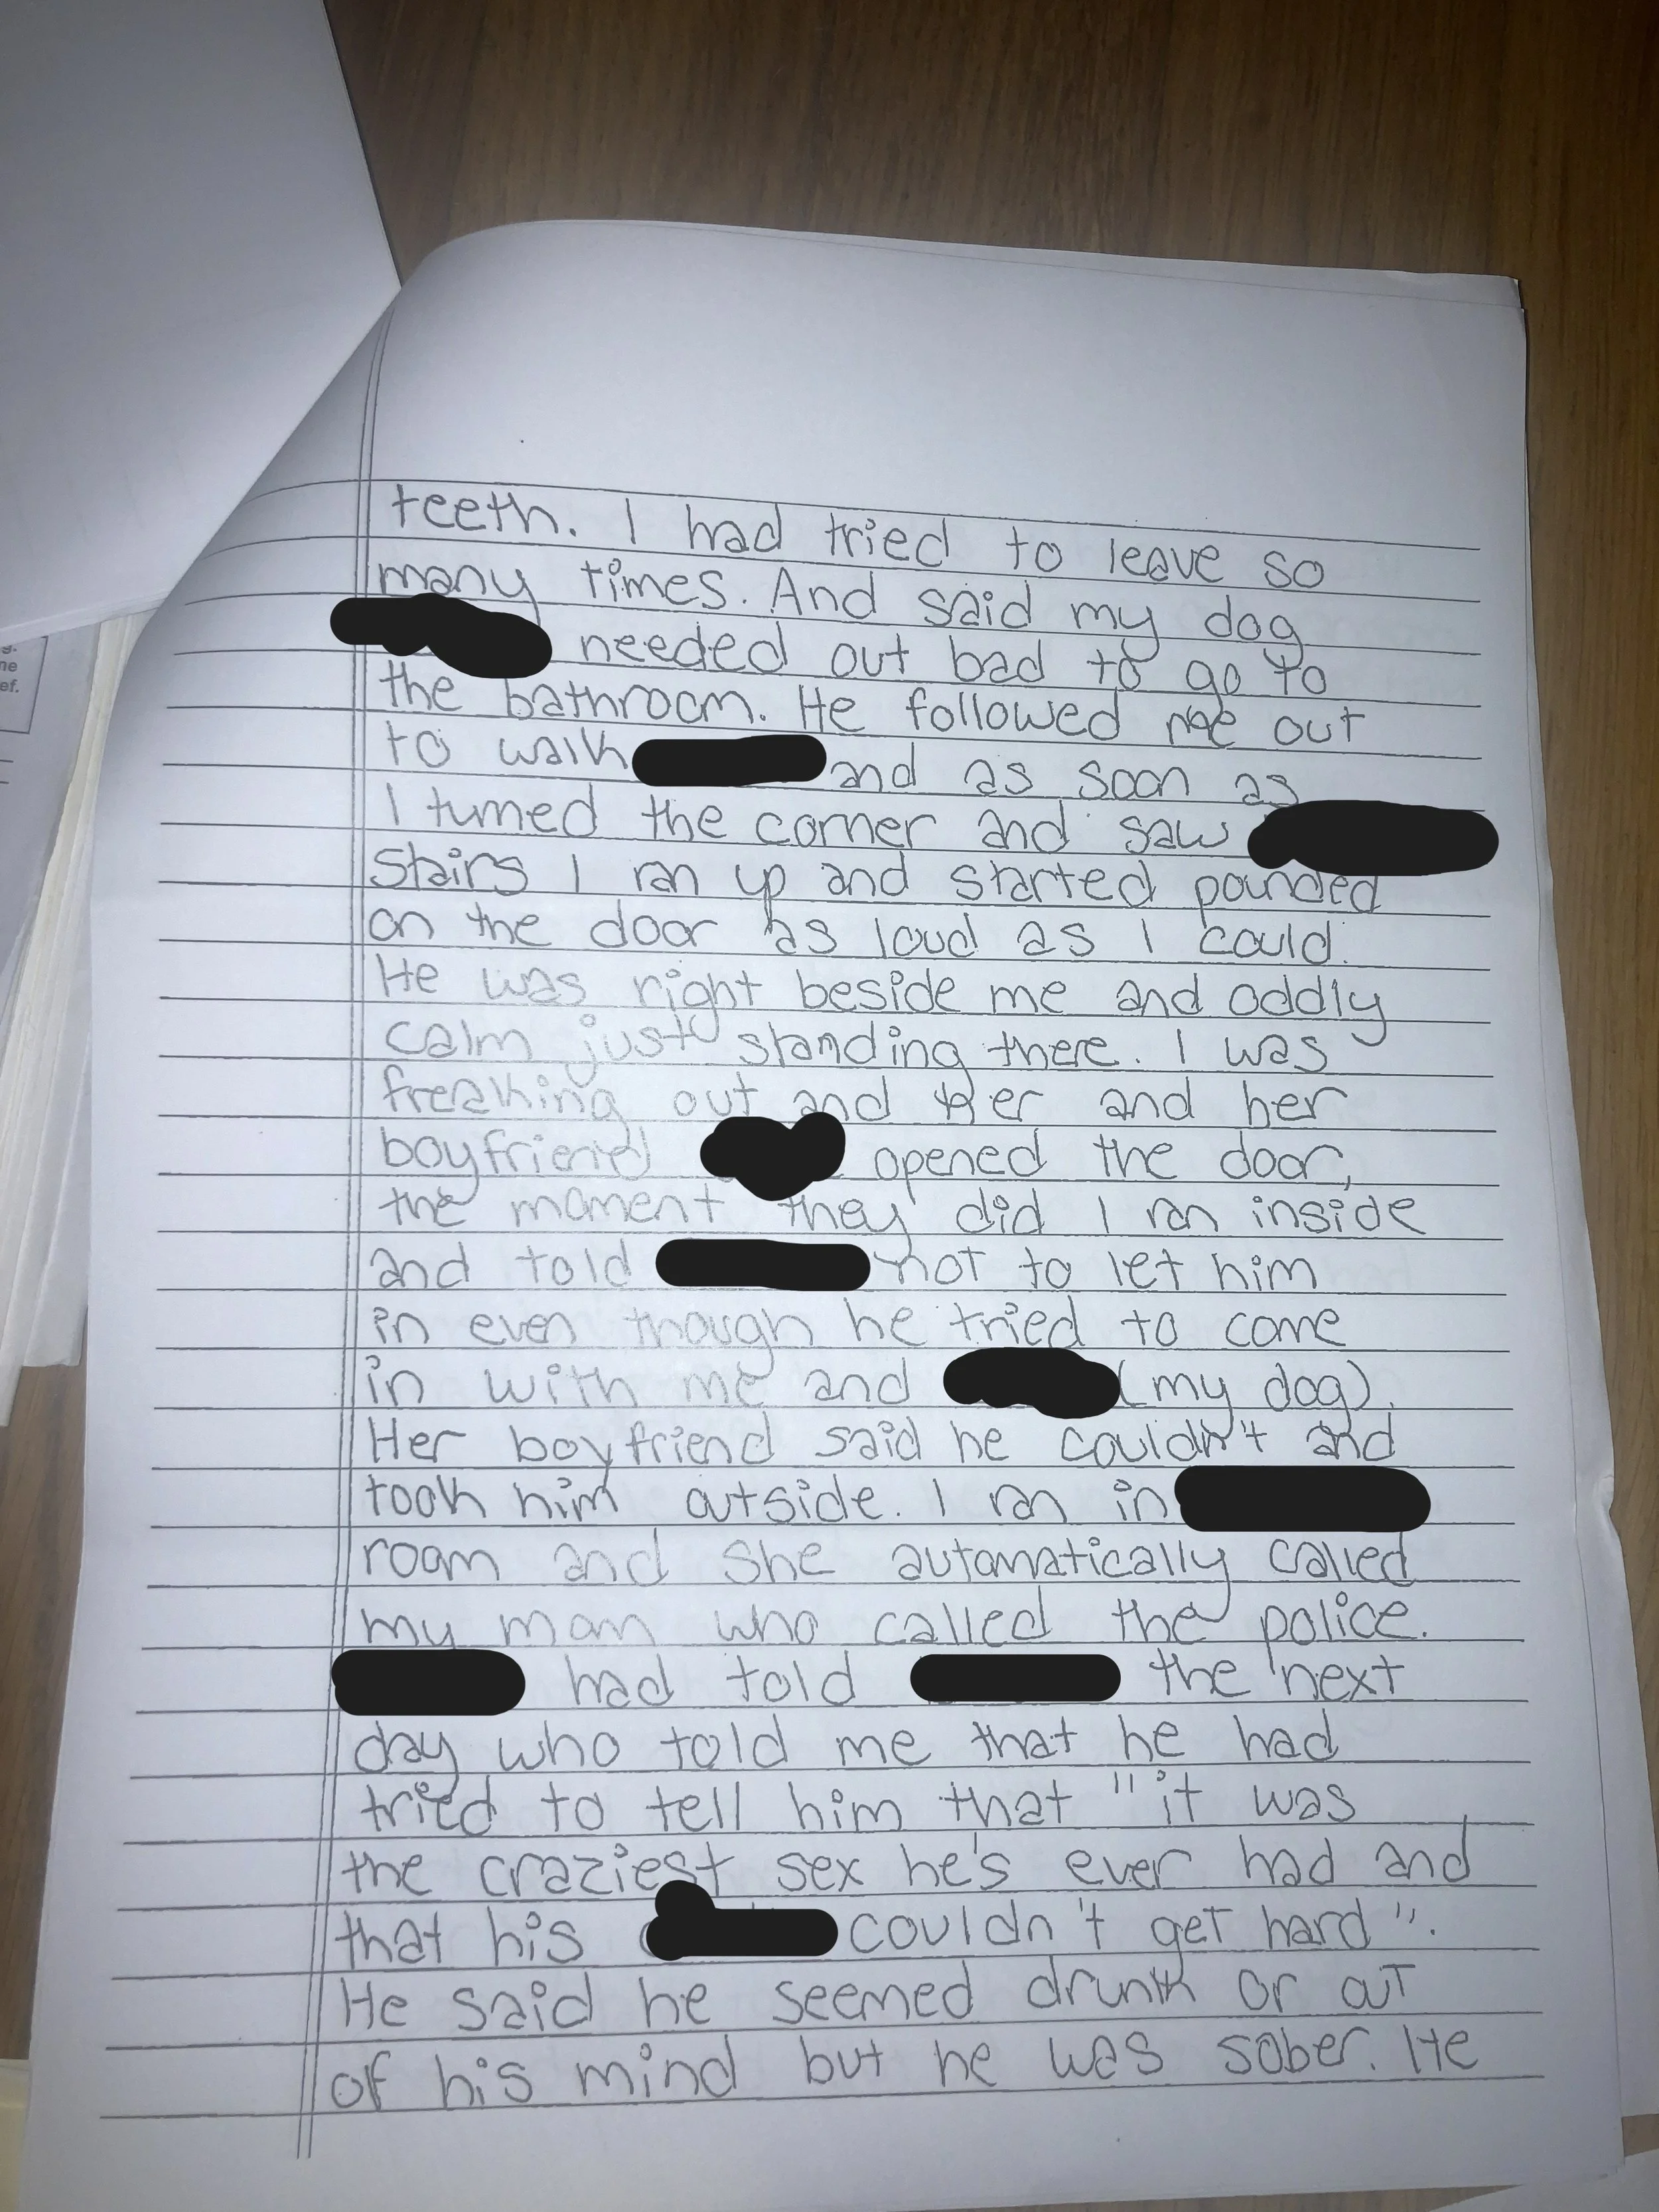 teeth. I had tried to leave so
many times. And said my dog
needed out bad to go to
the bathroom. He followed me out
to walk and as soon as
I turned the corner and saw
stairs I ran up and started pounded
on the door as loud as I could.
He was right beside me and oddly
calm just standing there. I was
freaking out and her and her
boyfriend opened the door,
the moment they did I ran inside
and told not to let him
in even though he tried to come
in with me and (my dog).
Her boyfriend said he couldn't and
took him outside. I ran in
room and she automatically called
my mom who called the police.
had told the next
day who told me that he had
tried to tell him that "it was
the craziest sex he's ever had and
that his couldn't get hard".
He said he seemed drunk or out
of his mind but he was sober. He
g.
ne
ef.